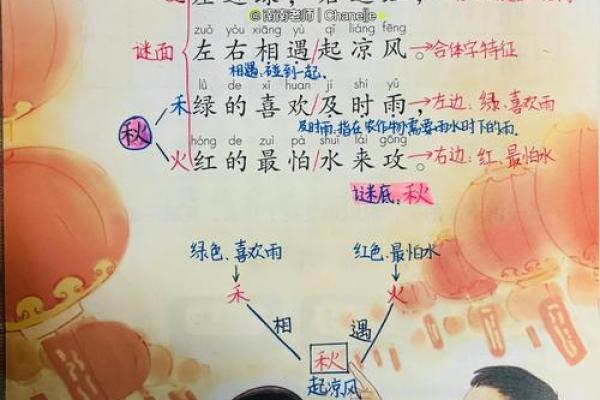 @南南老师 | Chanel je
zuǒ yòu xiāng yù qǐ liáng fēng
谜面 左右相遇/起凉风。→合体字特征
相遇:碰到一起。
lǜ de xǐ huan jí shí yǔ
禾 绿的喜欢/及时雨→左边:绿、喜欢雨
秋 及时雨:指在农作物需要雨水时下的雨。
hóng de zuì pà shuǐ lái gōng
火 红的最怕/水来攻。→右边:红、最怕水
谜底:秋
绿色、喜欢雨 红色、最怕水
禾 火
相 遇
秋
起凉风